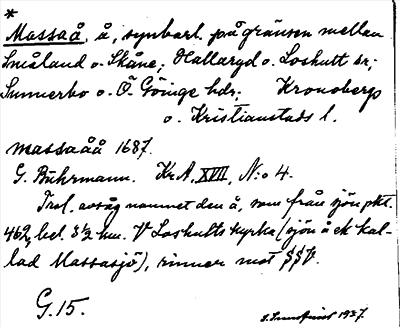 *
Massaå, å, synbarl. på gränsen mellan
Småland o. Skåne; Hallaryd o. Loshult sr;
Sunnerbo o. Ö. Göinge hdr; Kronobergs
o. Kristianstads l.
massaåå 1687.
G. Buhrmann. KrA, XVII, N:o 4.
Trol. avsåg namnet den å, som från sjön pkt.
462, bel. 3½ km. V Loshults kyrka (sjön å ek kal-
lad Massasjö), rinner mot SSV.
G. 15.
1937.